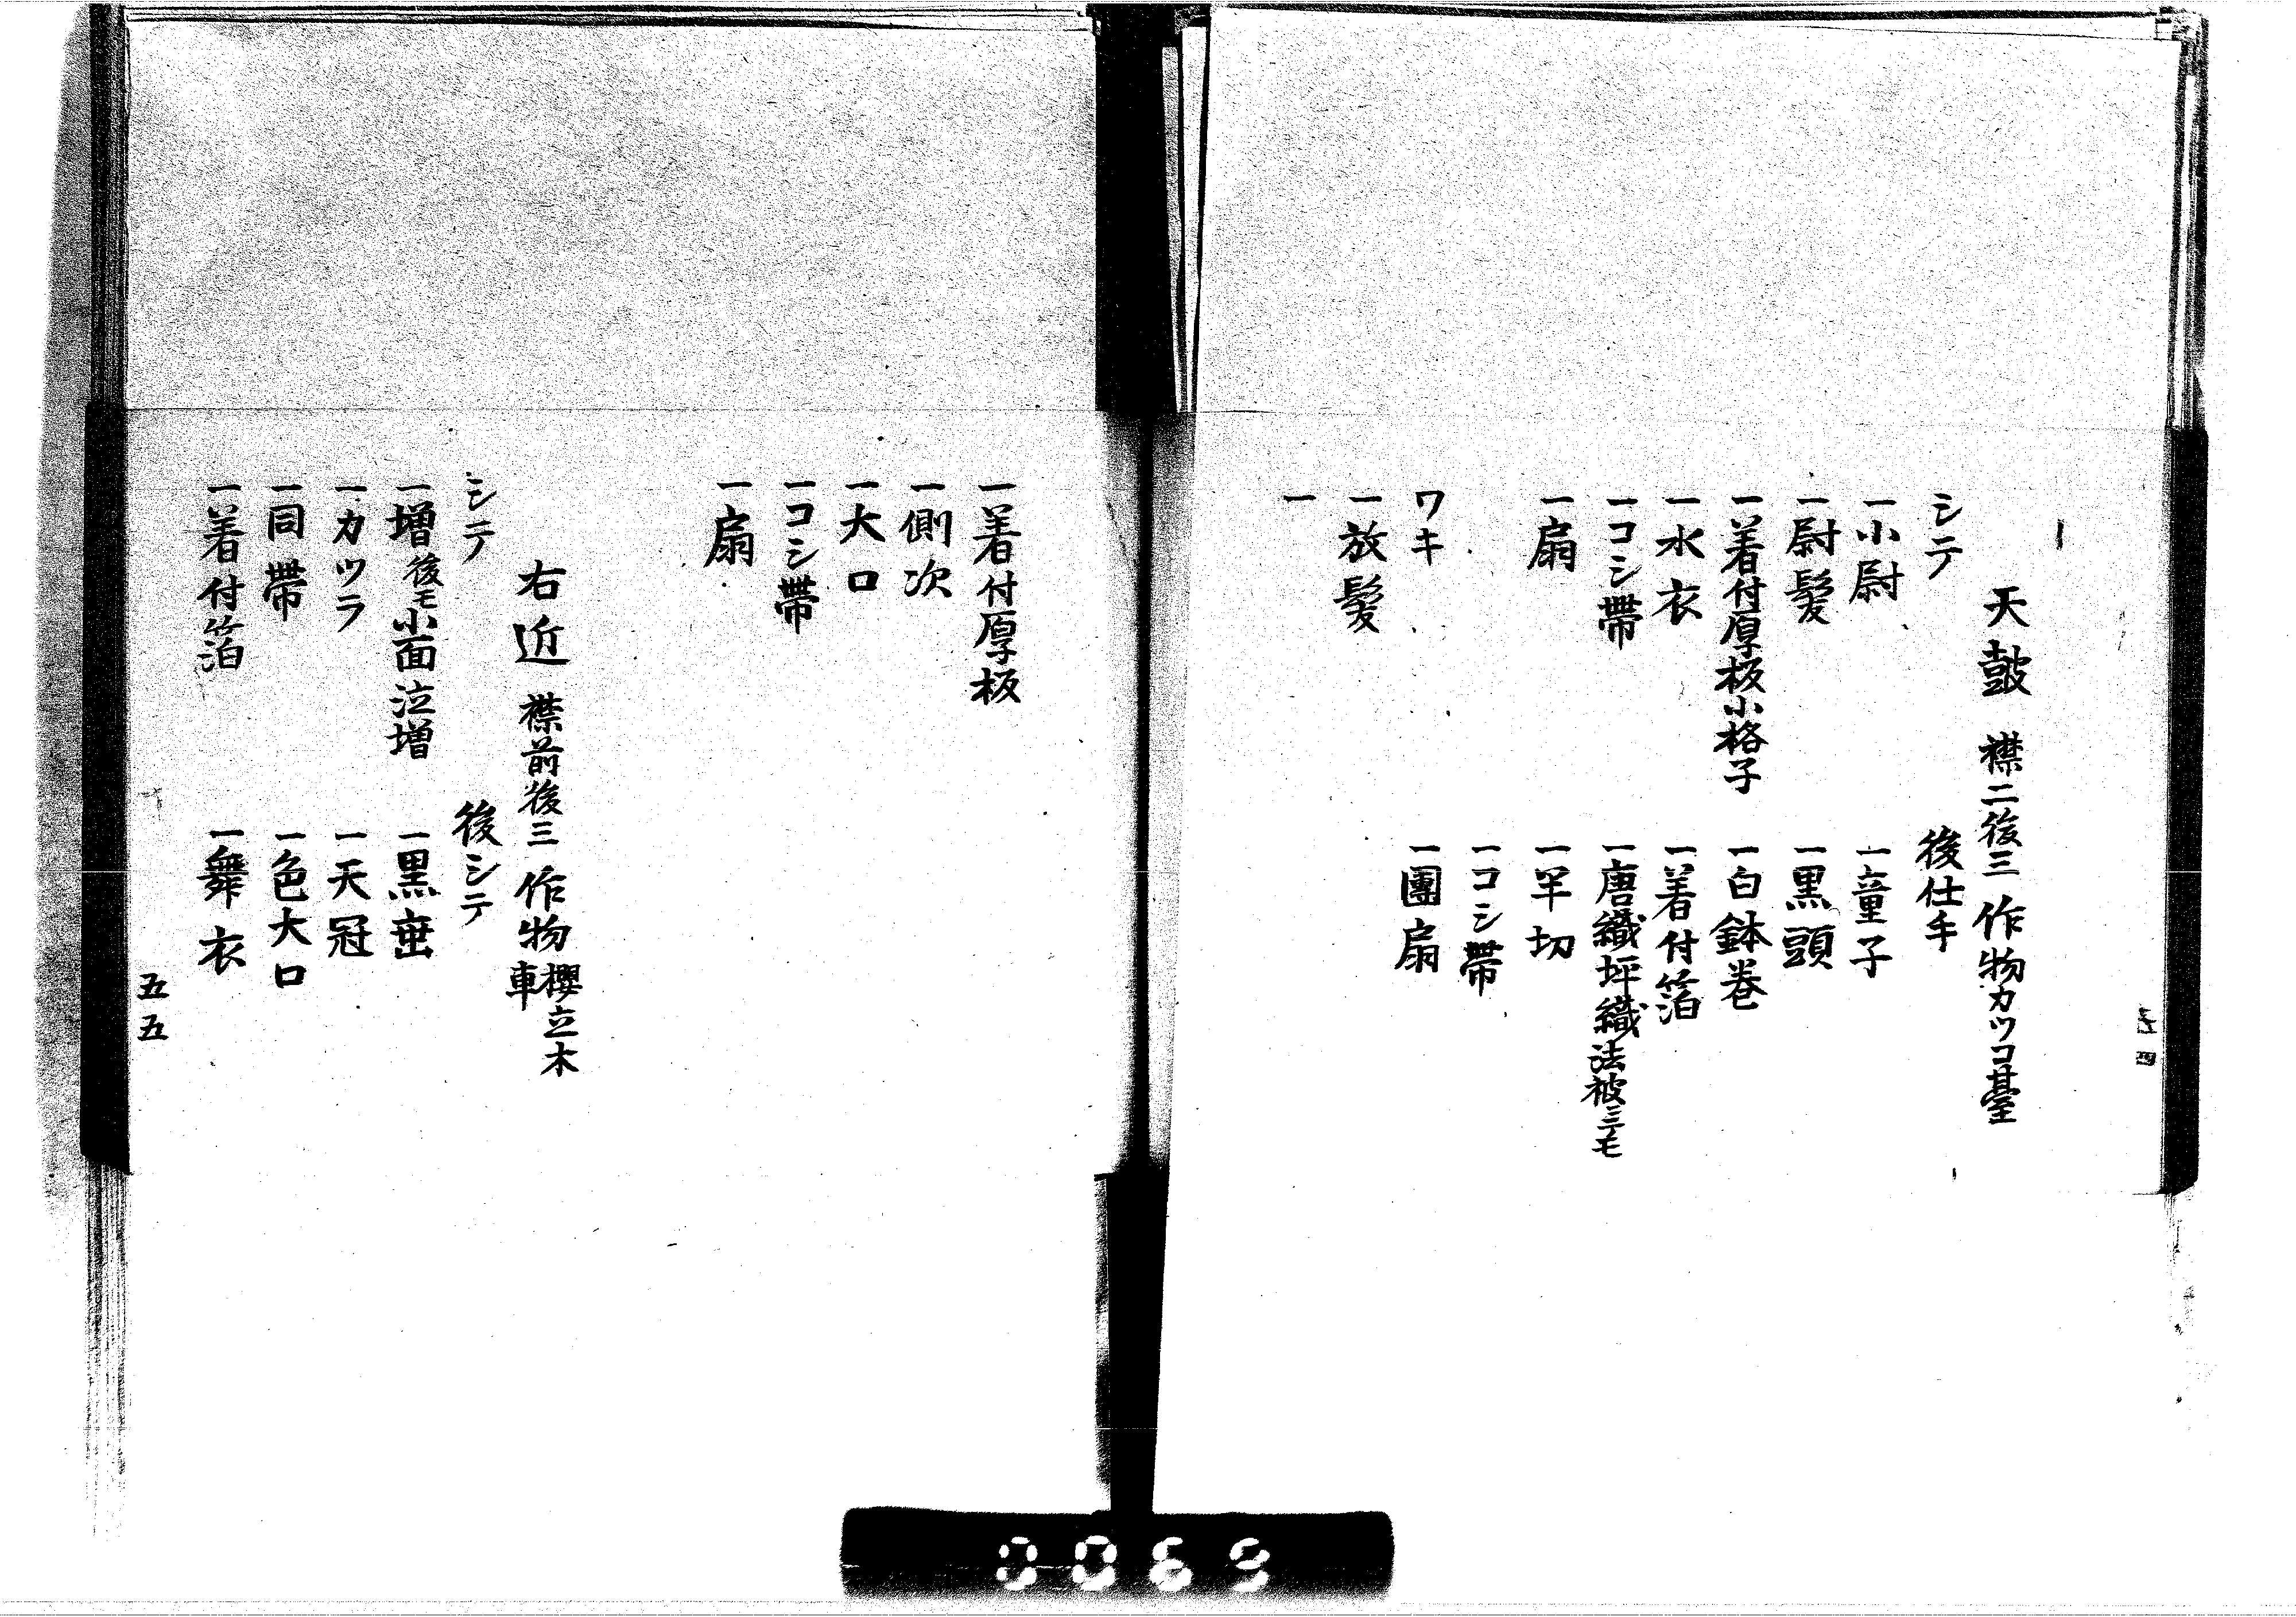 天鼓 襟二後三 作物カツコ臺
シテ
後仕手
一小尉
一童子
一尉髪
一黒頭
一着付厚板小格子
一白鉢巻
一水衣
一着付箔
一コシ帯
一唐織坪織法被ニテモ
一扇
一半切
一コシ帯
ワキ
一團扇
一放髪
一
一着付厚板
一側次
一大口
一コシ帯
一扇
右近 襟前後三 作物 櫻立木
車
シテ
後シテ
一増 後モ小面泣増
一黒垂
一カツラ
一天冠
一同帯
一色大口
一着付箔
一舞衣
五五